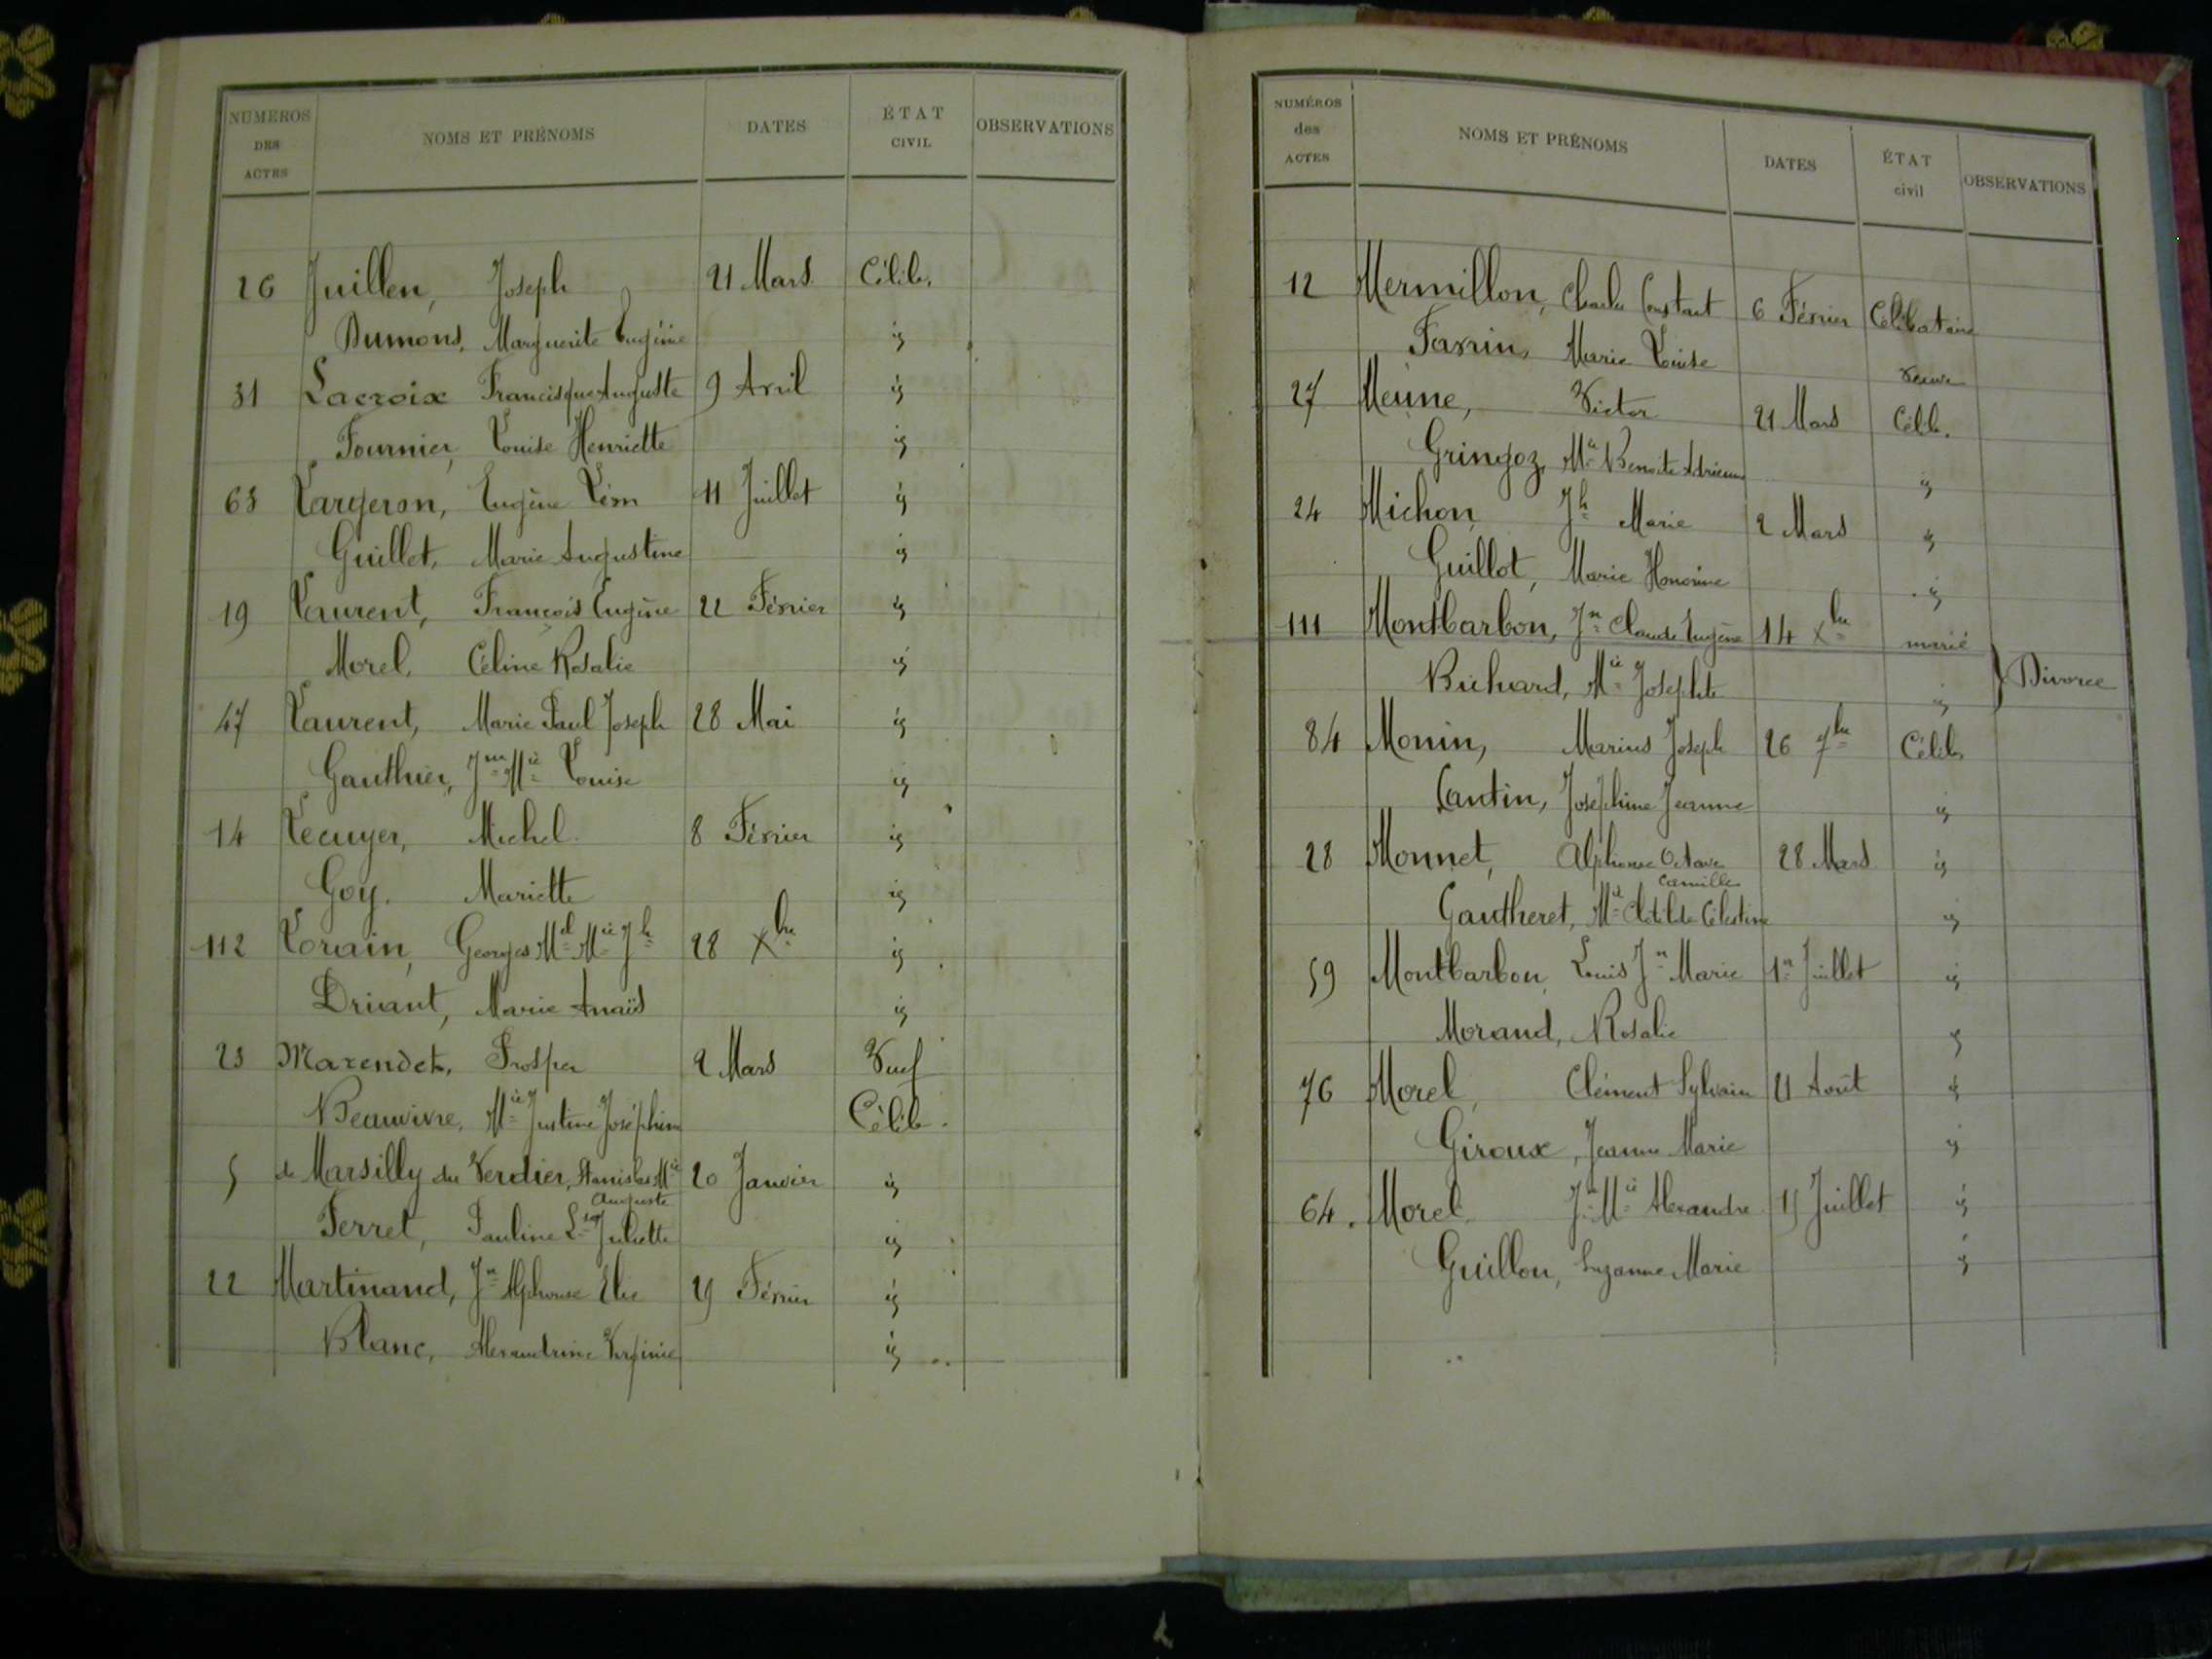 NUMEROS DES ACTES NOMS ET PRÉNOMS DATES ÉTAT CIVIL OBSERVATIONS
26 Juillen, Joseph 21 Mars Célib.
Dumons, Marguerite Eugénie id
31 Lacroix Francisque Auguste 9 Avril id
Fournier, Louise Henriette id
63 Largeron, Eugène Léon 11 Juillet id
Guillet, Marie Augustine id
19 Laurent, François Eugène 22 Février id
Morel, Céline Rosalie id
47 Laurent, Marie Paul Joseph 28 Mai id
Gauthier, Jne Mie Louise id
14 Lecuyer, Michel 8 Février id
Goy, Mariette id
112 Lorain, Georges Mel Mie Jh 28 Xbre id
Driant, Marie Anaïs id
23 Marendet, Prosper 2 Mars Veuf
Beauvivre, Mie Justine Joséphine Célib.
5 de Marsilly du Verdier, Stanislas Mie Auguste 20 Janvier id
Ferret, Pauline Lse Juliette id
22 Martinand, Jn Alphonse Elie 29 Février id
Blanc, Alexandrine Virginie id
NUMÉROS des ACTES NOMS ET PRÉNOMS DATES ÉTAT civil OBSERVATIONS
12 Mermillon, Charles Constant 6 Février Célibataire
Favrin, Marie Louise Veuve
27 Meune, Victor 21 Mars Célib.
Gringoz, Mie Benoite Adrienne id
24 Michon, Jh Marie 2 Mars id
Guillot, Marie Honorine id
111 Montbarbon, Jn Claude Eugène 14 Xbre marié
Buchard, Mie Josephte id } Divorce
84 Monin, Marius Joseph 26 7bre Célib.
Cantin, Joséphine Jeanne id
28 Monnet, Alphonse Octave Camille 28 Mars id
Gautheret, Mie Clotilde Célestine id
59 Montbarbon, Louis Jn Marie 1er Juillet id
Morand, Rosalie id
76 Morel, Clément Sylvain 21 Août id
Giroux, Jeanne Marie id
64. Morel Jn Mie Alexandre 15 Juillet id
Guillon, Suzanne Marie id